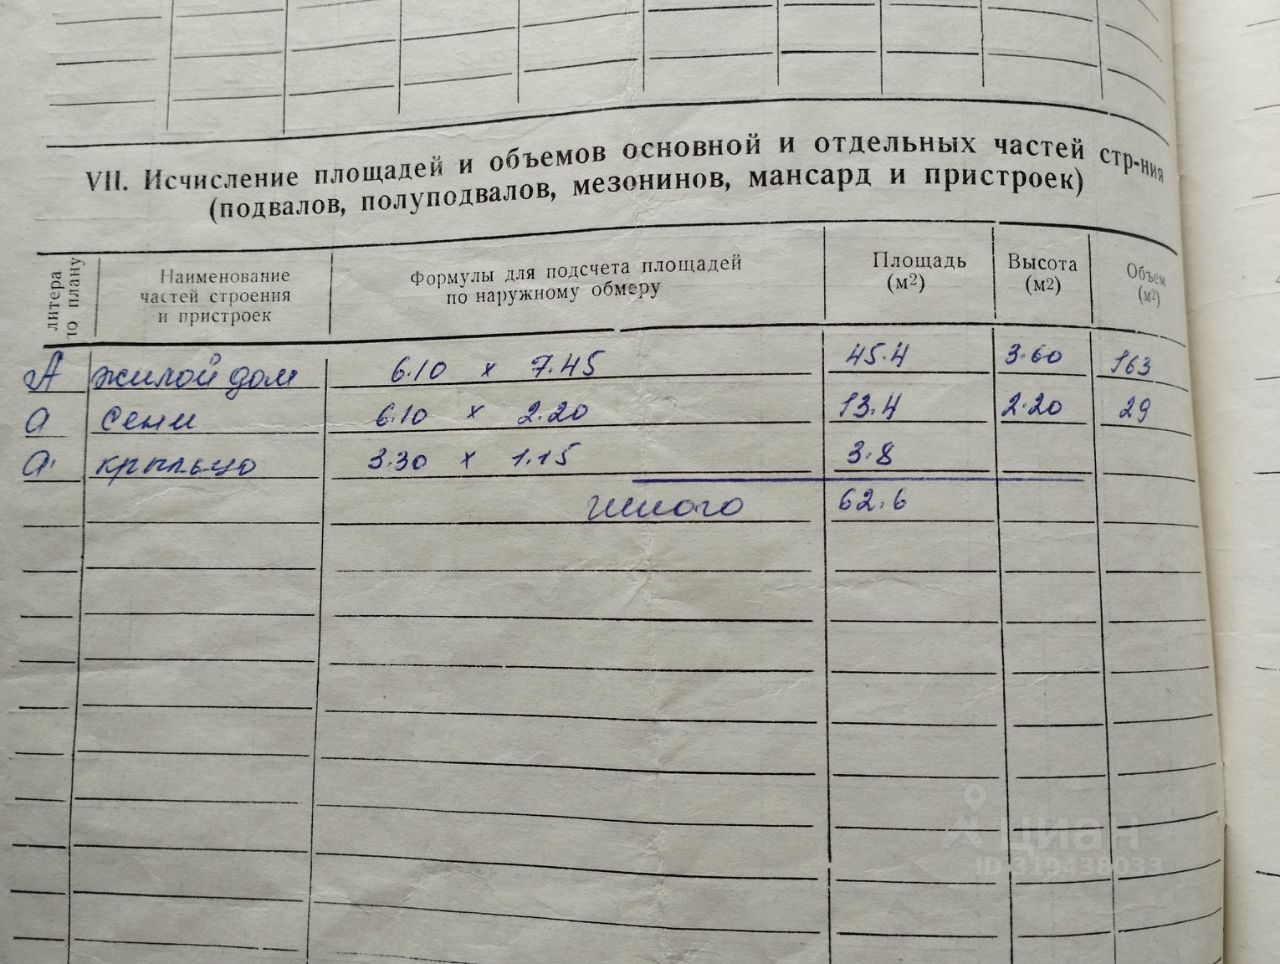 VII. Исчисление площадей и объемов основной и отдельных частей стр-ния
(подвалов, полуподвалов, мезонинов, мансард и пристроек)
литера по плану Наименование частей строения и пристроек Формулы для подсчета площадей по наружному обмеру Площадь (м2) Высота (м2) Объем (м2)
А жилой дом 6.10 х 7.45 45.4 3.60 163
а сени 6.10 х 2.20 13.4 2.20 29
а' крыльцо 3.30 х 1.15 3.8
итого 62.6
циан
ID 319438033